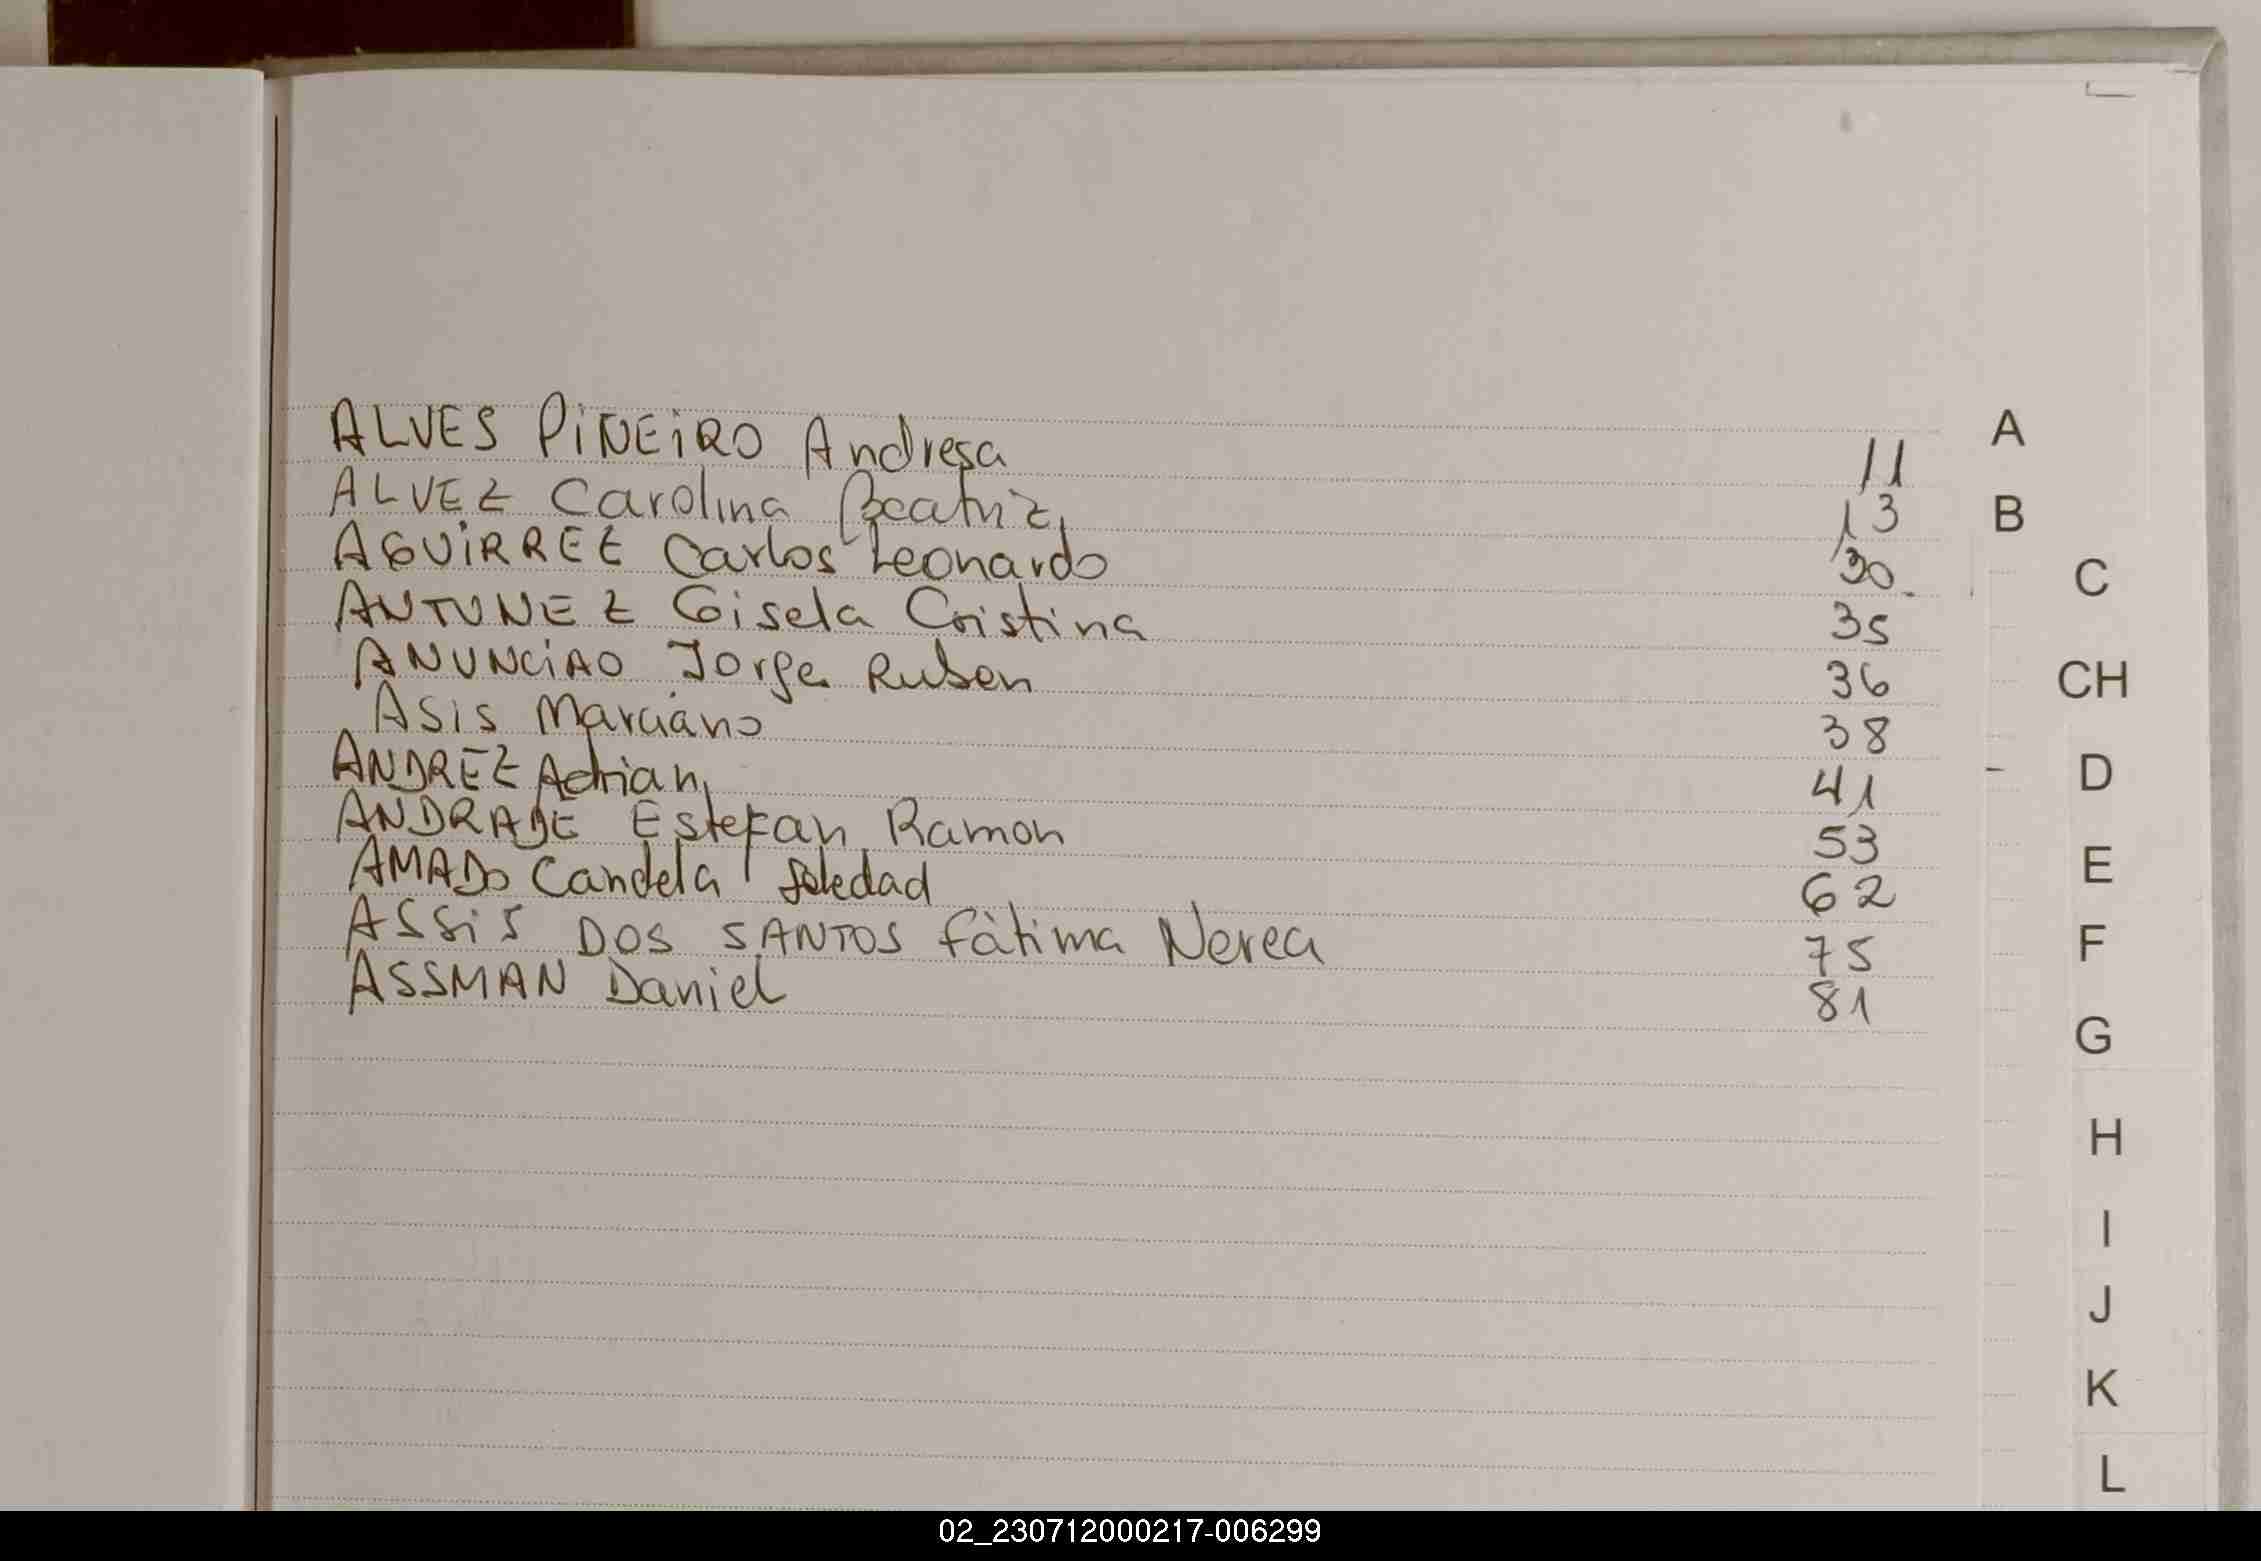 ALVES PIÑEIRO Andresa 11
ALVEZ Carolina Beatriz 13
AGUIRREZ Carlos Leonardo 30
ANTUNEZ Gisela Cristina 35
ANUNCIAO Jorge Ruben 36
ASIS Marciano 38
ANDREZ Adrian 41
ANDRADE Estefan Ramon 53
AMADO Candela Soledad 62
ASSIS DOS SANTOS Fàtima Nerea 75
ASSMAN Daniel 81
A
B
C
CH
D
E
F
G
H
I
J
K
L
02_230712000217-006299